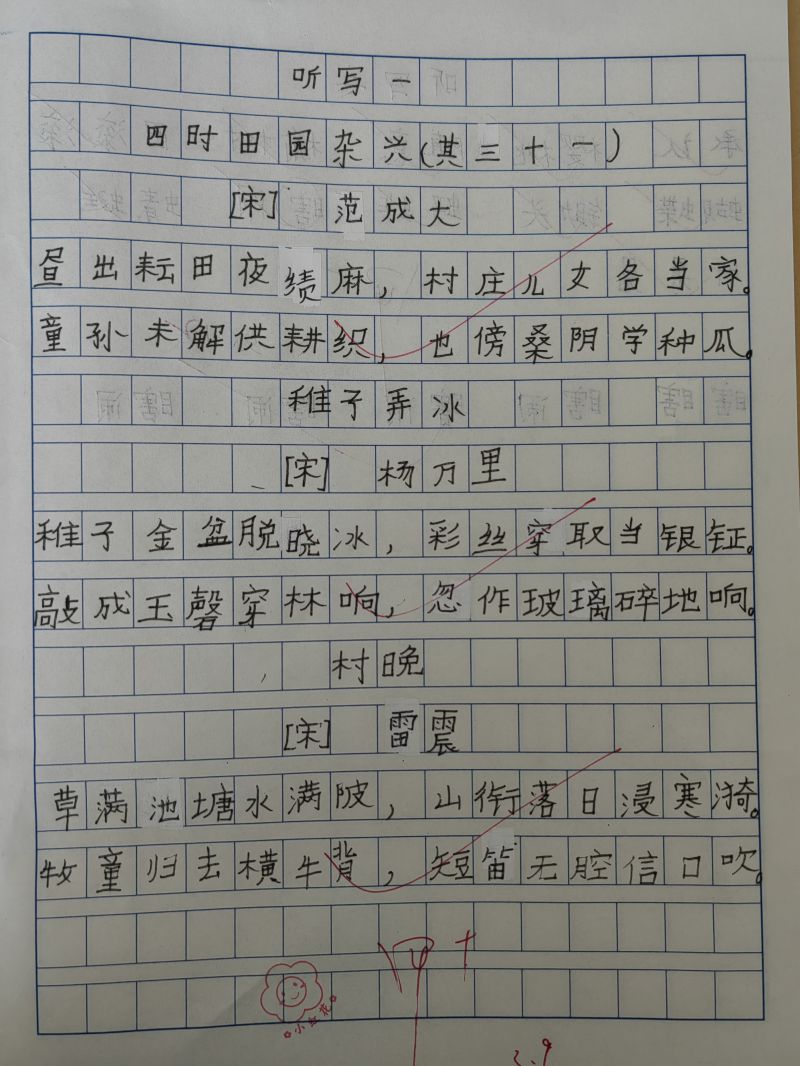 听写一
四时田园杂兴(其三十一)
[宋] 范成大
昼出耘田夜绩麻，村庄儿女各当家。
童孙未解供耕织，也傍桑阴学种瓜。
稚子弄冰
[宋] 杨万里
稚子金盆脱晓冰，彩丝穿取当银钲。
敲成玉磬穿林响，忽作玻璃碎地响。
村晚
[宋] 雷震
草满池塘水满陂，山衔落日浸寒漪。
牧童归去横牛背，短笛无腔信口吹。
小红花
3.9